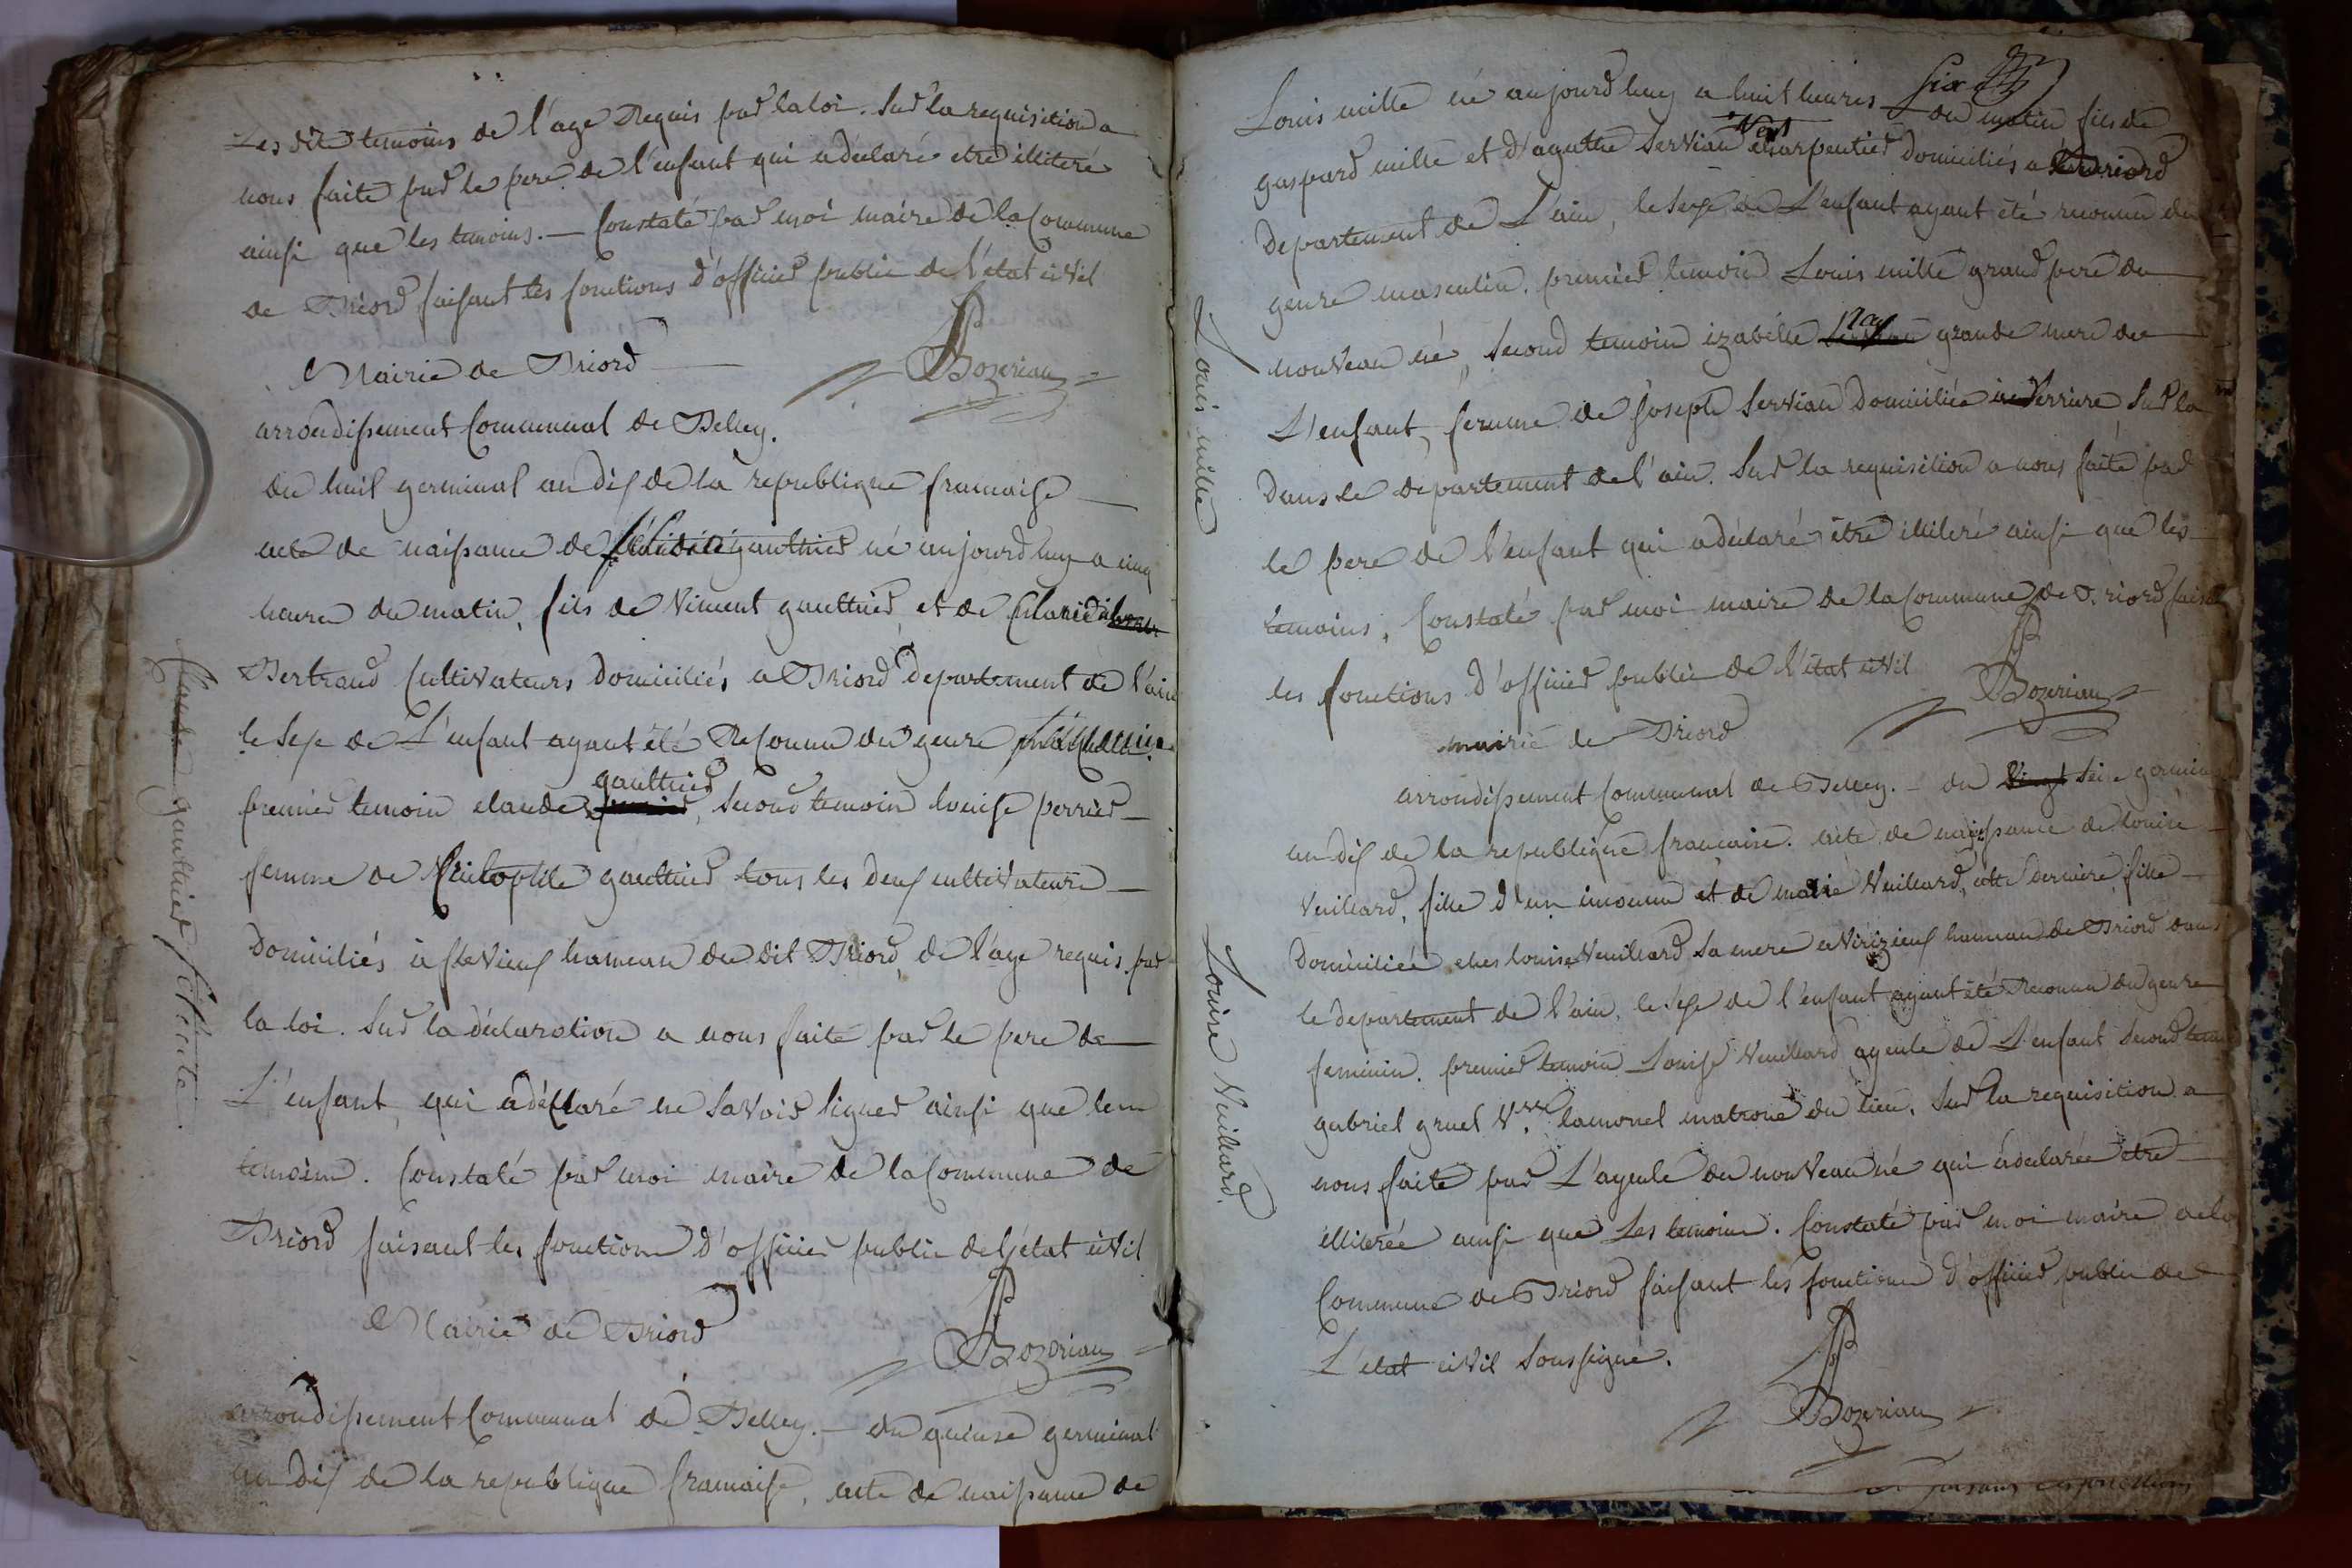 Les dits temoins de l'age Requis par la loi. Sur la requisition a
nous faite par le pere de l'enfant qui a declaré etre illiteré
ainsi que les temoins. — Constaté par moi maire de la Commune
de Briord faisant les fonctions d'officier public de l'état civil
Bozerian
Mairie de Briord
arrondissement Communal de Belley.
du huit germinal an dix de la republique francaise
acte de naissance de félicité gauthier né aujourd huy a cinq
heures du matin, fils de Vincent gauthier, et de
Bertrand Cultivateurs domiciliés a Briord departement de l'ain
le Sexe de L'enfant ayant été Reconnu du genre
premier temoin claude gauthier, Second temoin louise perrier
femme de gauthier tous les deux cultivateurs
domiciliés à hameau du dit Briord, de l'age requis par
la loi. Sur la déclaration a nous faite par le pere de
L'enfant, qui a déclaré ne Savoir Signer ainsi que les
temoins. Constaté par moi maire de la Commune de
Briord faisant les fonctions d'officier public de l'état civil
Mairie de Briord
Bozerian
arrondissement Communal de Belley. — du quinze germinal
an dix de la republique francaise, acte de naissance de
gauthier félicité
Louis mille né aujourd huy a huit heures Six du matin fils de
gaspard mille et d'agathe Servian charpentier domiciliés a Briord
departement de L'ain, le Sexe de L'enfant ayant été reconnu du
genre masculin. premier temoin Louis mille grand pere du
nouveau né, Second temoin izabelle grande mere de
L'enfant, femme de joseph Servian domiciliée a Sur la
dans le departement de l'ain. Sur la requisition a nous faite par
le pere de l'enfant qui a déclaré être illiteré ainsi que les
temoins. Constaté par moi maire de la Commune de Briord
les fonctions d'officier public de l'état civil
Bozerian
mairie de Briord
arrondissement Communal de Belley. — du vingt Seize
an dix de la republique francaise. acte de naissance de louise
Vuillard, fille d'un inconnu et de marie Vuillard, cette derniere fille
domiciliée chez louise Vuillard Sa mere a Virizieux hameau de Briord dans
le departement de l'ain. le Sexe de l'enfant ayant été Reconnu du genre
feminin. premier temoin Louise Vuillard ayeule de L'enfant Second
gabriel gruel matrone du lieu. Sur la requisition a
nous faite par L'ayeule du nouveau né qui a declarée etre
illiterée ainsi que Les temoins. Constaté par moi maire de la
Commune de Briord faisant les fonctions d'officier public de
L'état civil Soussigné.
Bozerian
Louis mille
Louise Vuillard.